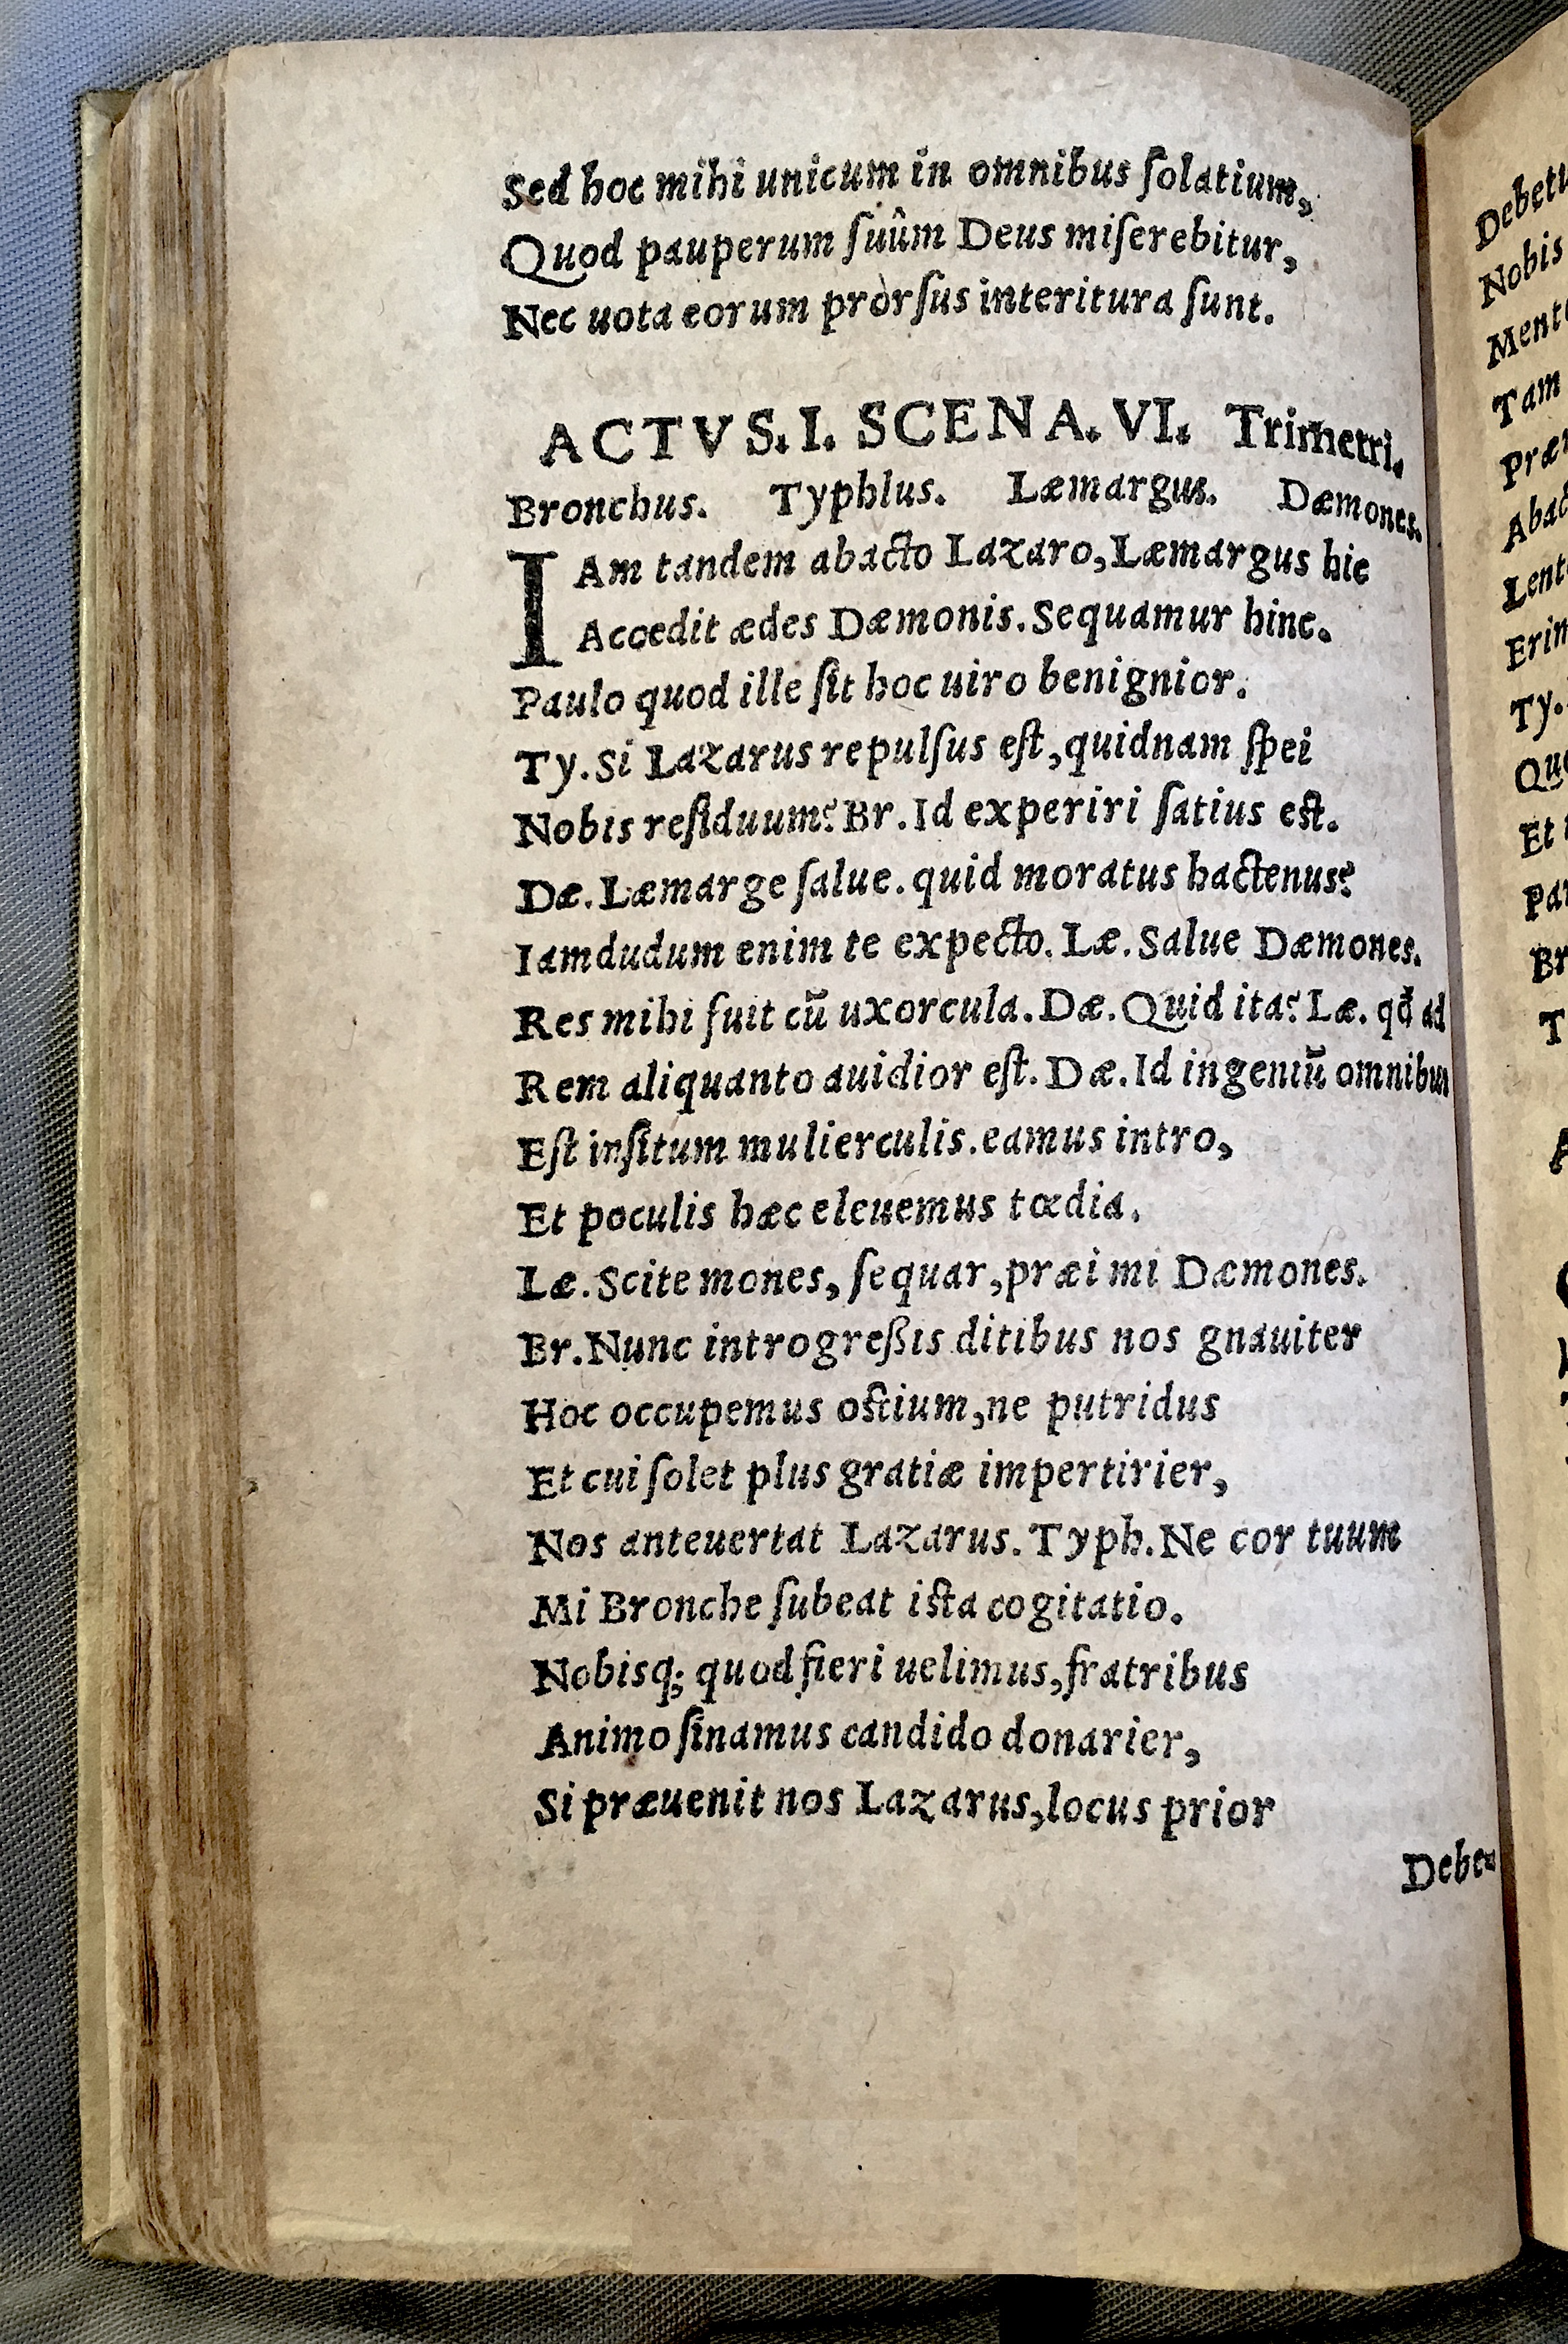 Sed hoc mihi unicum in omnibus ſolatium,
Quod pauperum ſuûm Deus miſerebitur,
Nec uota eorum prorſus interitura ſunt.
ACTVS. I. SCENA. VI. Trimetri.
Bronchus. Typhlus. Læmargus. Dæmones.
IAm tandem abacto Lazaro, Læmargus hic
Accedit ædes Dæmonis. Sequamur hinc.
Paulo quod ille ſit hoc uiro benignior.
Ty. Si Lazarus repulſus eſt, quidnam ſpei
Nobis reſiduum? Br. Id experiri ſatius eſt.
Dæ. Læmarge ſalue. quid moratus hactenus?
Iamdudum enim te expecto. Læ. Salue Dæmones.
Res mihi fuit cū uxorcula. Dæ. Quid ita? Læ. qđ ad
Rem aliquanto auidior eſt. Dæ. Id ingeniū omnibus
Eſt inſitum mulierculis. eamus intro,
Et poculis hæc eleuemus tœdia.
Læ. Scite mones, ſequar, præi mi Dæmones.
Br. Nunc introgreßis ditibus nos gnauiter
Hoc occupemus oſtium, ne putridus
Et cui ſolet plus gratiæ impertirier,
Nos anteuertat Lazarus. Typh. Ne cor tuum
Mi Bronche ſubeat iſta cogitatio.
Nobisq; quod fieri uelimus, fratribus
Animo ſinamus candido donarier,
Si præuenit nos Lazarus, locus prior
Debe-
Nobis
Tam
Ty.
Et